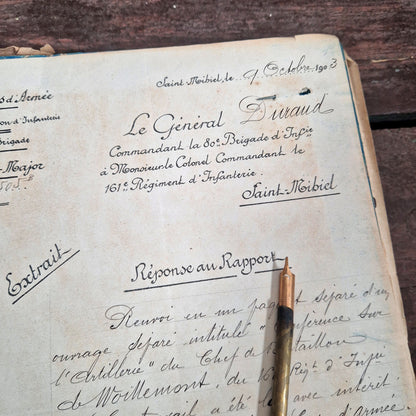 Saint-Mihiel, le 9 Octobre 1903
s d'Armée
on d'Infanterie
Brigade
-Major
505
Le Général Durand
Commandant la 80e Brigade d'Infie
à Monsieur le Colonel Commandant le
161e Régiment d'Infanterie.
Saint-Mihiel
Extrait
Réponse au Rapport
Renvoi en un paquet séparé d'un
ouvrage séparé intitulé "Conférence sur
l'Artillerie" du Chef de Bataillon
de Woillemont, du 16 Régt d'Infie
a été avec intérêt
l'Armée